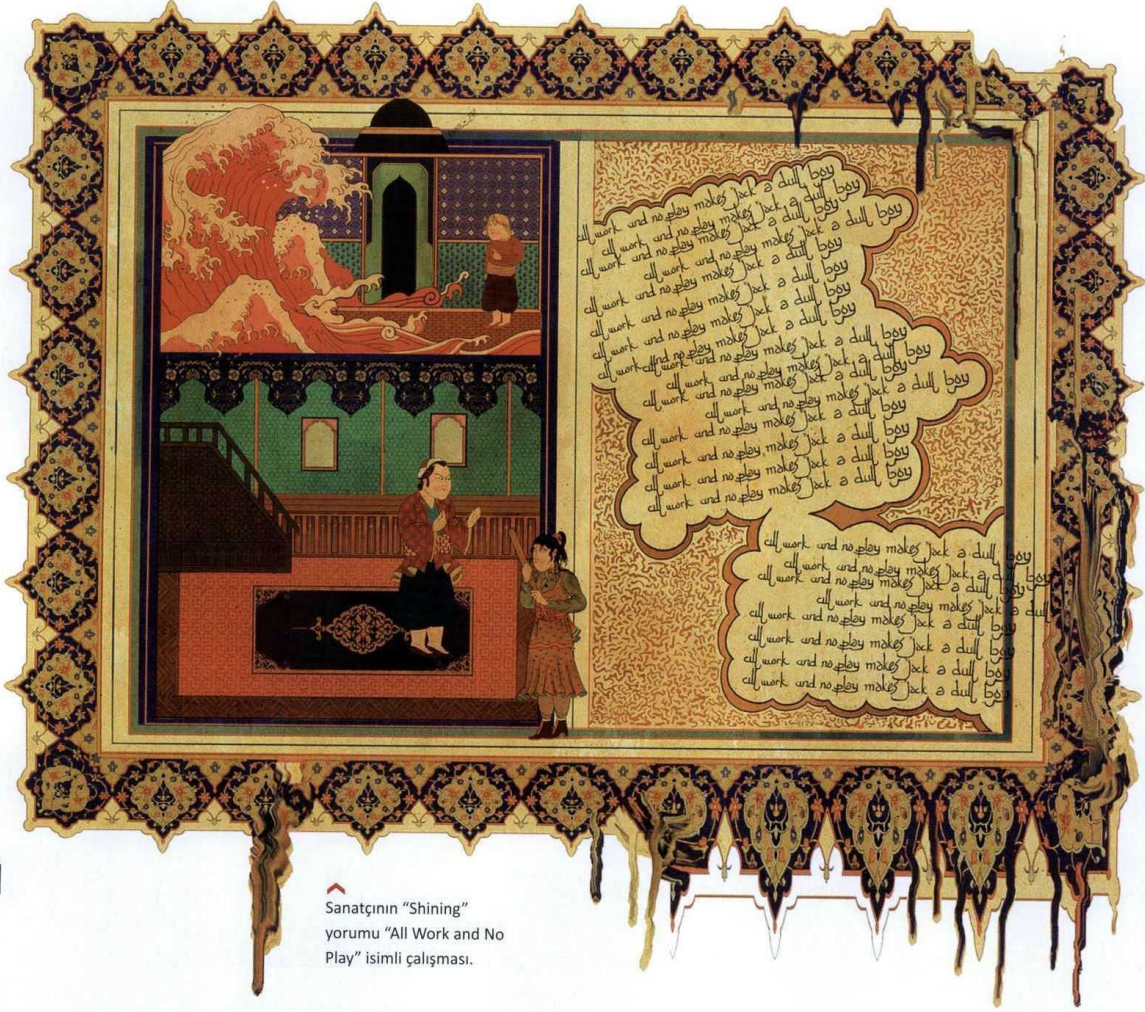 all work and no play makes Jack a dull boy
all work and no play makes Jack, a dull boy
all work and no play makes Jack a dull boy
all work and no play makes Jack a dull boy
all work and no play makes Jack a dull boy
all work and no play makes Jack a dull boy
all work and no play makes Jack a dull boy
all work and no play makes Jack a dull boy
all work and no play makes Jack a dull boy
all work and no play makes Jack, a dull boy
all work and no play makes Jack a dull boy
all work and no play makes Jack a dull boy
all work and no play makes Jack a dull boy
all work and no play makes Jack a dull boy
all work and no play makes Jack a dull boy
all work and no play makes Jack a dull boy
all work and no play makes Jack a dull boy
all work and no play makes Jack a dull boy
all work and no play makes Jack a dull boy
all work and no play makes Jack a dull
all work and no play makes Jack a dull boy
all work and no play makes Jack a dull boy
all work and no play makes Jack a dull boy
all work and no play makes Jack a dull boy
Sanatçının “Shining”
yorumu “All Work and No
Play” isimli çalışması.